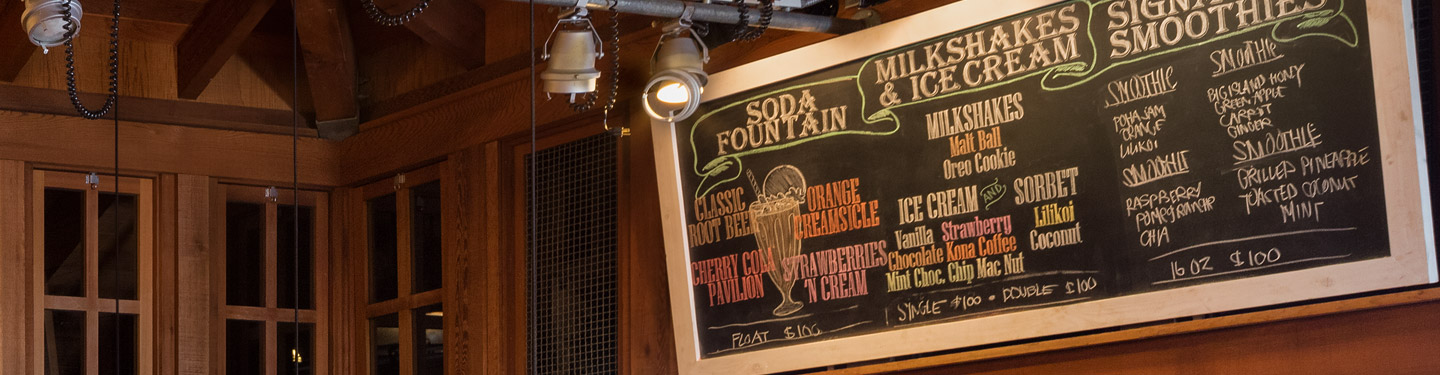 SODA
FOUNTAIN
CLASSIC
ROOT BEER
ORANGE
CREAMSICLE
CHERRY COLA
PAVILION
STRAWBERRIES
'N CREAM
FLOAT $100
MILKSHAKES
& ICE CREAM
MILKSHAKES
Malt Ball
Oreo Cookie
ICE CREAM AND SORBET
Vanilla Strawberry
Chocolate Kona Coffee
Mint Choc. Chip Mac Nut
Lilikoi
Coconut
SINGLE $100 • DOUBLE $100
SMOOTHIES
SMOOTHIE
POHA JAM
ORANGE
LILIKOI
SMOOTHIE
RASPBERRY
CHIA
SMOOTHIE
BIG ISLAND HONY
GREEN APPLE
CARROT
GINGER
SMOOTHIE
GRILLED PINEAPPLE
TOASTED COCONUT
MINT
16 OZ $100